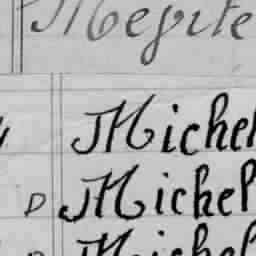 Megite
Michel
D Michel
Michel